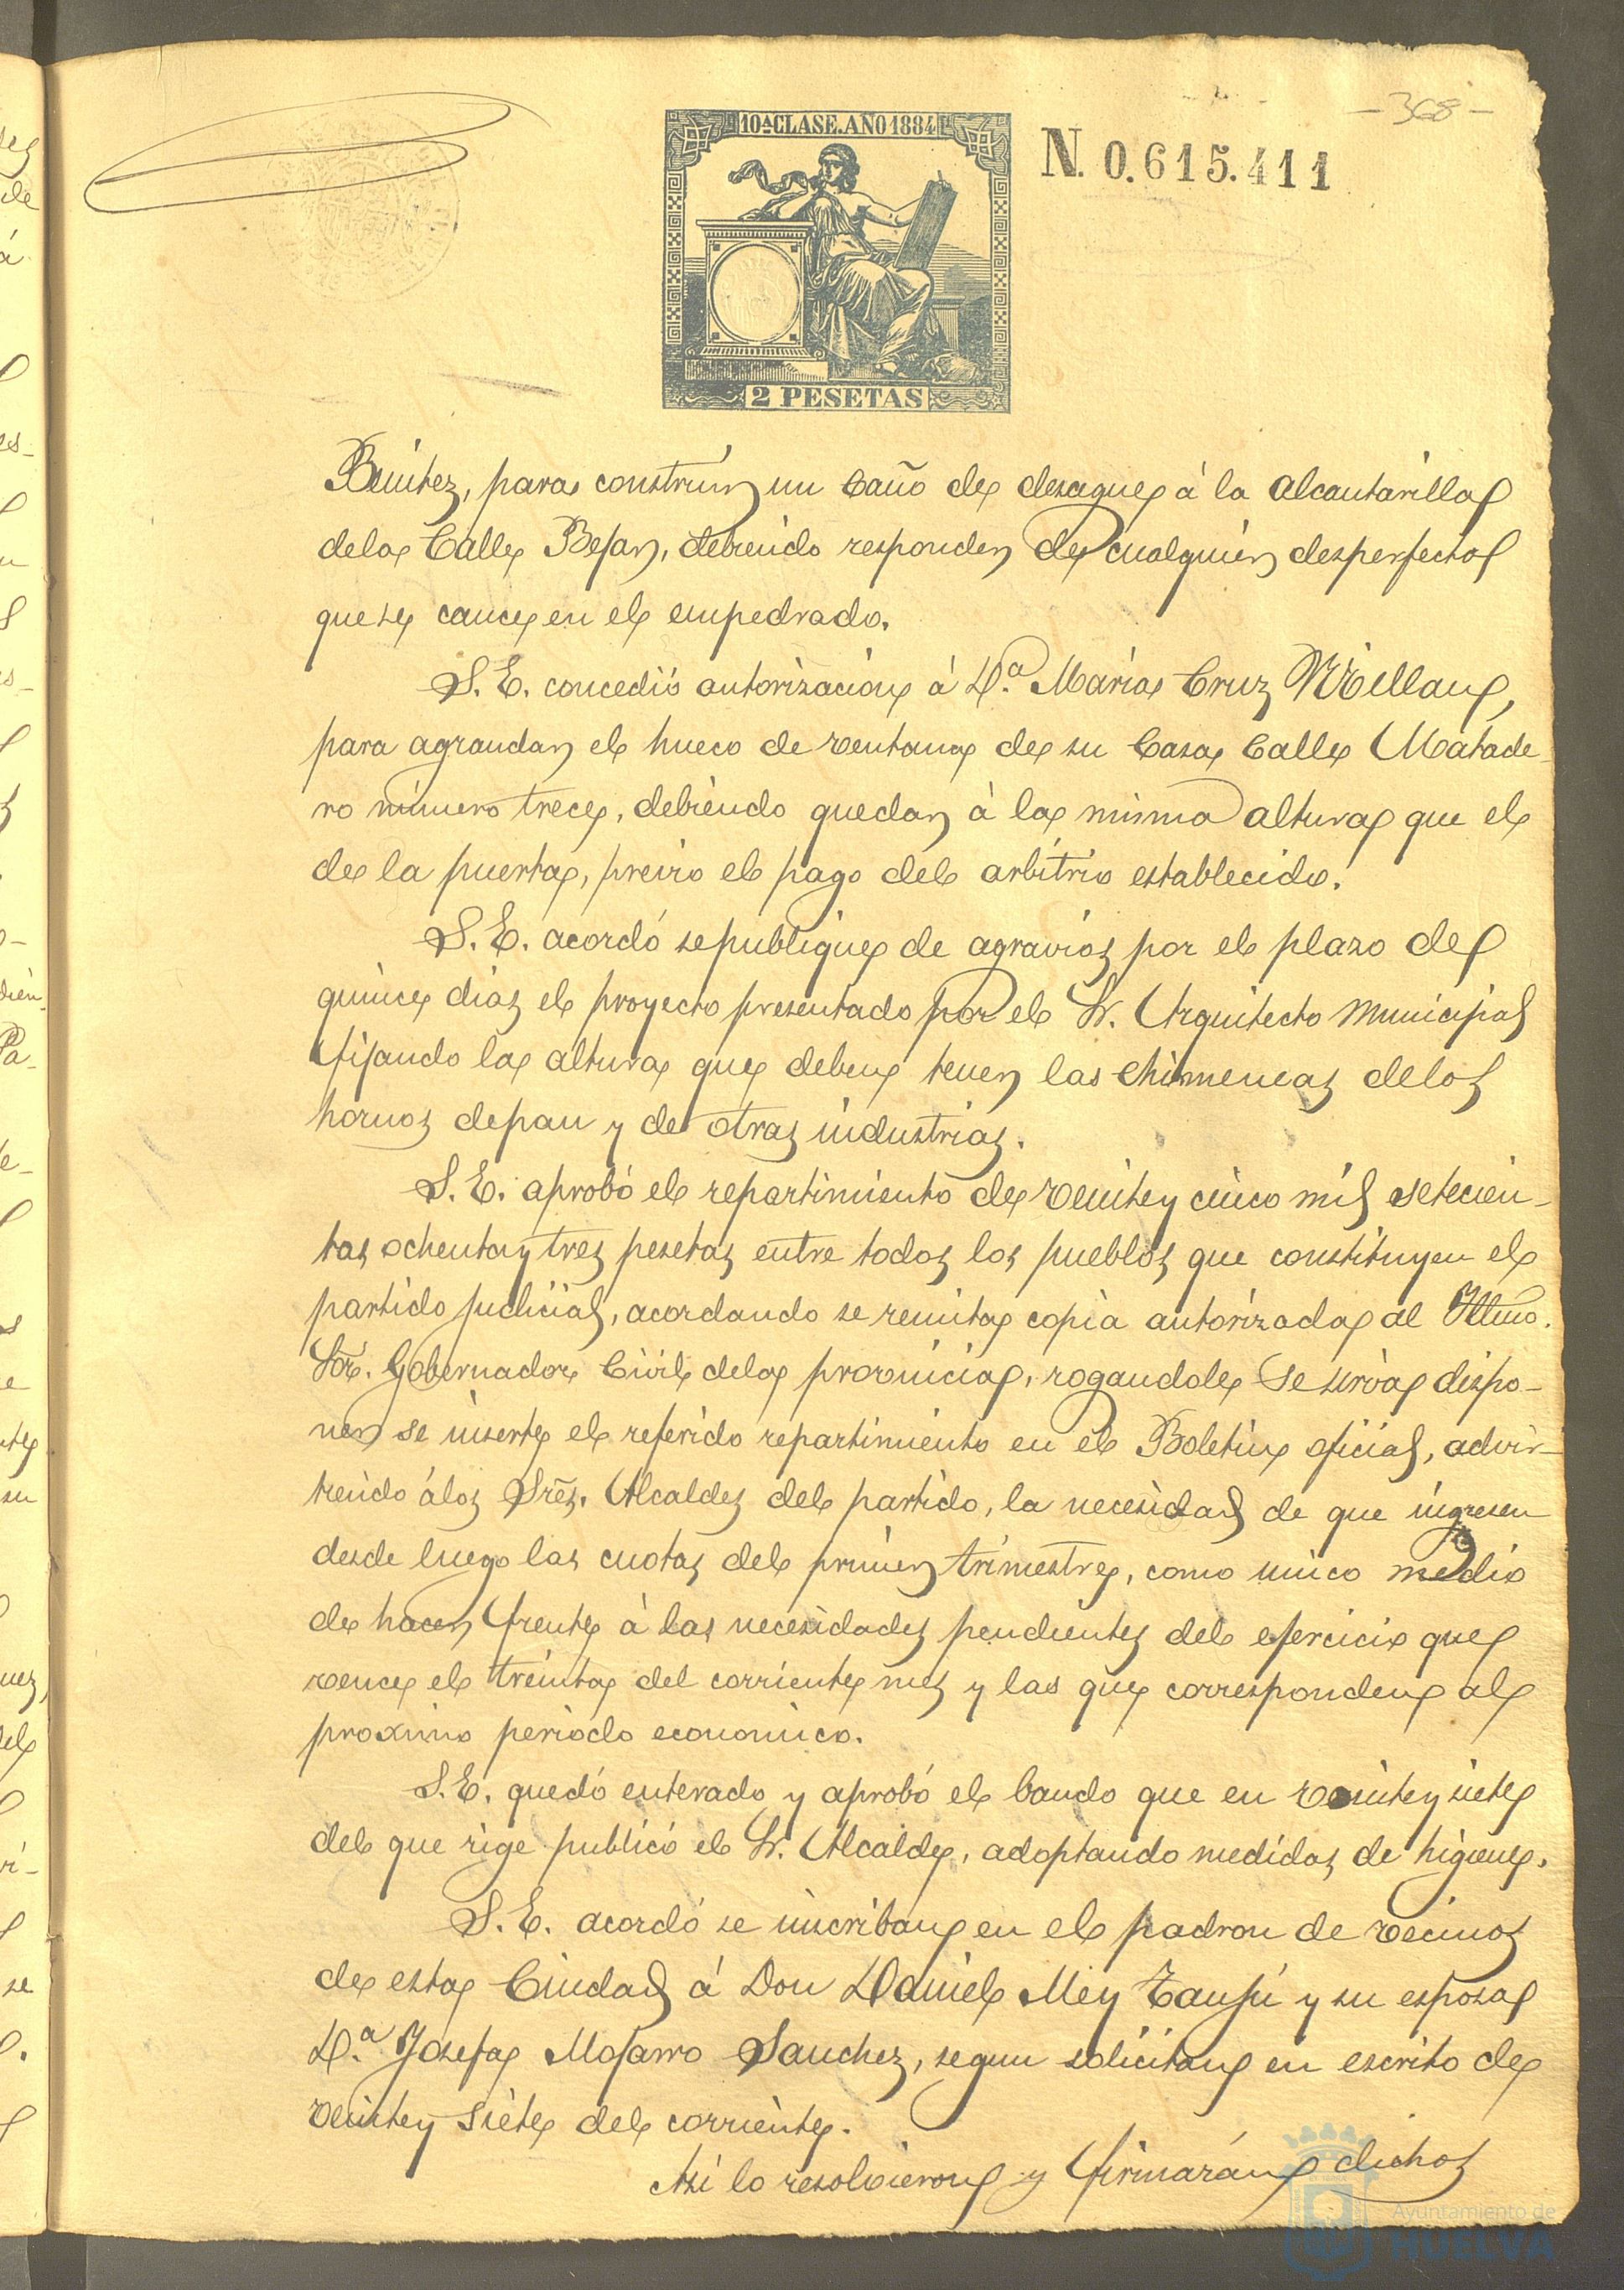 -368-
10ª CLASE. AÑO 1884
N. 0.615.411
2 PESETAS
Benitez, para construir un Caño de desague á la alcantarilla
dela Calle Bejar, debiendo responder de cualquier desperfecto
que se cauce en el empedrado.
S. E. concedió autorizacion á D.ª Maria Cruz Millan,
para agrandar el hueco de ventana de su Casa Calle Matade-
ro número trece, debiendo quedar á la misma altura que el
de la puerta, previo el pago del arbitrio establecido.
S. E. acordó se publique de agravios por el plazo de
quince dias el proyecto presentado por el Sr. Arquitecto Municipal
fijando la altura que deben tener las chimeneas delos
hornos de pan y de otras industrias.
S. E. aprobó el repartimiento de veinte y cinco mil setecien-
tas ochenta y tres pesetas entre todos los pueblos que constituyen el
partido judicial, acordando se remita copia autorizada al Iltmo.
Sor. Gobernador Civil dela provincia, rogandole se sirva dispo-
ner se inserte el referido repartimiento en el Boletin oficial, advir-
tiendo álos Sres. Alcaldes del partido, la necesidad de que ingresen
desde luego las cuotas del primer trimestre, como unico medio
de hacer frente á las necesidades pendientes del ejercicio que
vence el treinta del corriente mes y las que corresponden al
proximo periodo economico.
S. E. quedó enterado y aprobó el bando que en veinte y siete
del que rige publicó el Sr. Alcalde, adoptando medidas de higiene.
S. E. acordó se inscriban en el padron de vecinos
de esta Ciudad á Don Daniel Mey Tanjú y su esposa
D.ª Josefa Mojarro Sanchez, segun solicitan en escrito de
veinte y siete del corriente.
Asi lo resolvieron y firmarán dichos
Ayuntamiento de
HUELVA